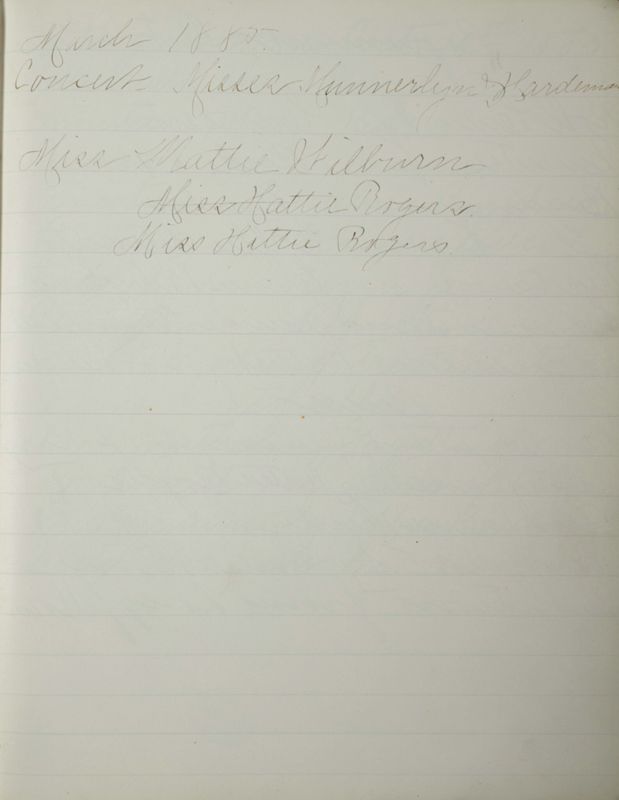 March 1885.
Concert Misses Nunnerlyn & Hardeman
Miss Mattie Wilburn
Miss Hattie Rogers.
Miss Hittie Rogers.